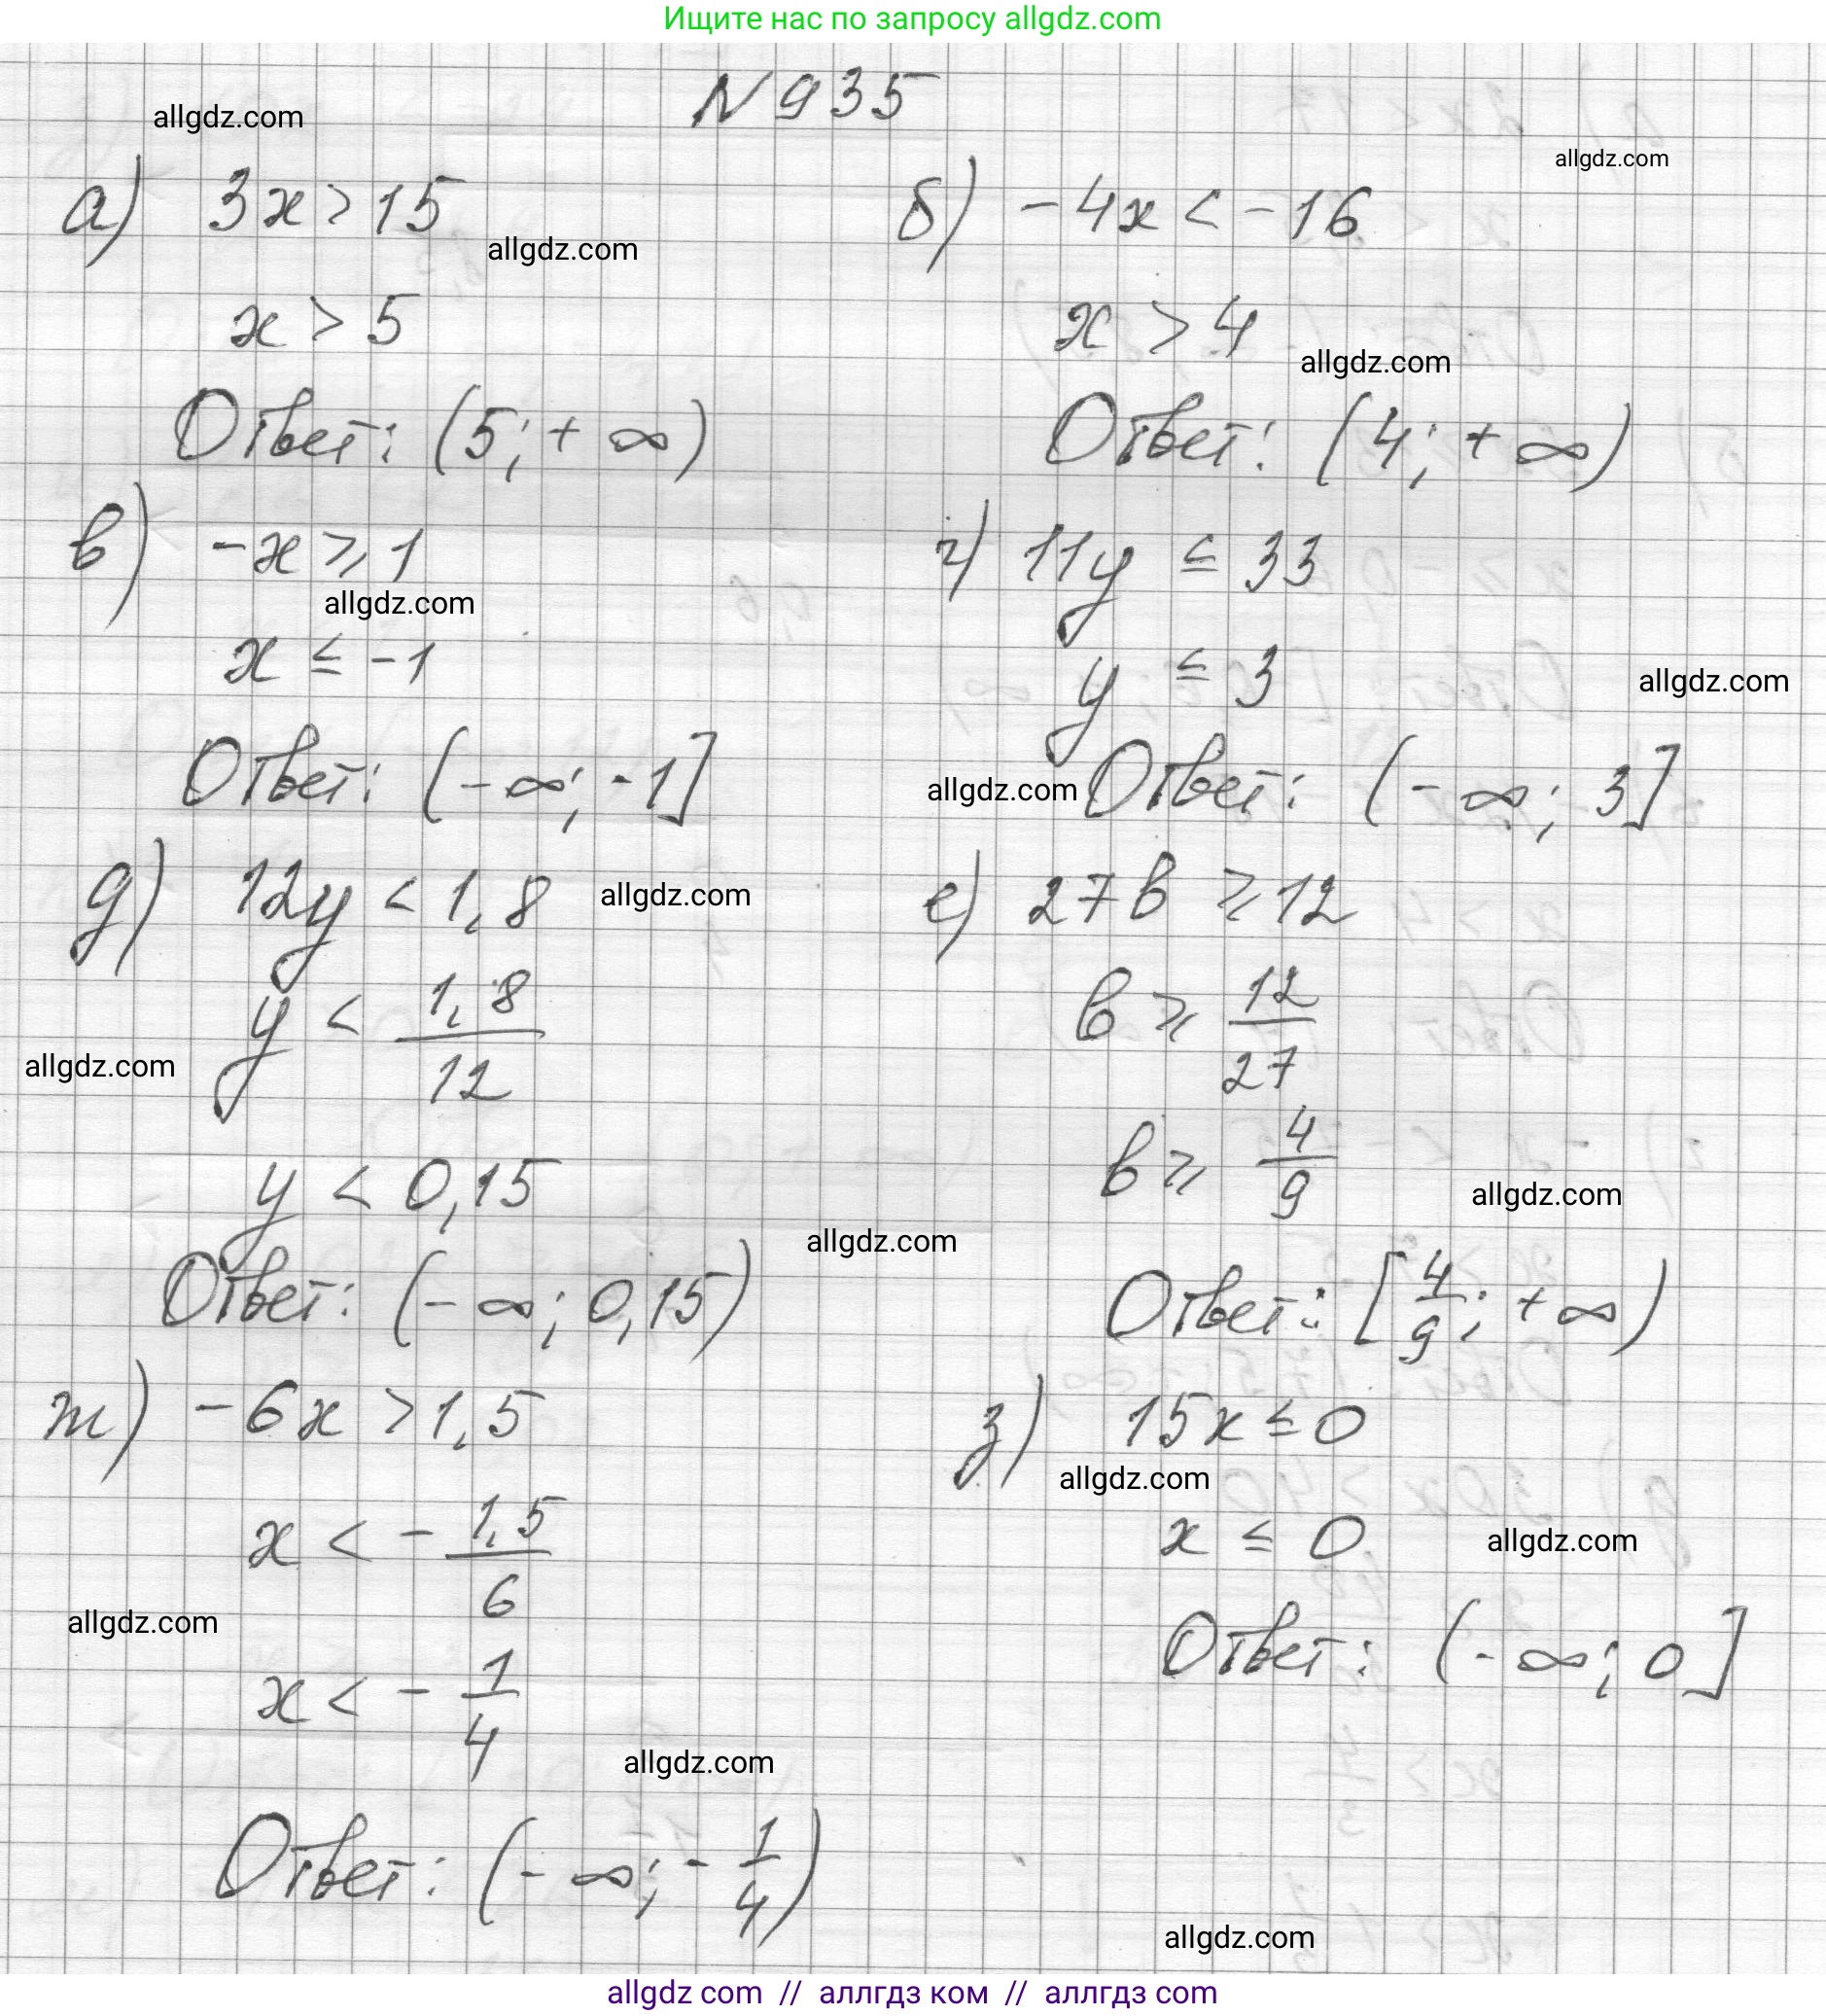 Ищите нас по запросу allgdz.com
N 935
allgdz.com
allgdz.com
а) 3x > 15
allgdz.com
x > 5
Ответ: (5; + ∞)
б) -4x < -16
x > 4
allgdz.com
Ответ: (4; + ∞)
в) -x ⩾ 1
allgdz.com
x ≤ -1
Ответ: (- ∞; -1]
г) 11y ≤ 33
y ≤ 3
allgdz.com
allgdz.com
Ответ: (- ∞; 3]
д) 12y < 1,8
allgdz.com
y < 1,8/12
allgdz.com
y < 0,15
allgdz.com
Ответ: (- ∞; 0,15)
е) 27в ⩾ 12
в ⩾ 12/27
в ⩾ 4/9
allgdz.com
Ответ: [4/9; + ∞)
ж) -6x > 1,5
x < - 1,5/6
allgdz.com
x < - 1/4
allgdz.com
Ответ: (- ∞; - 1/4)
з) 15x ≤ 0
allgdz.com
x ≤ 0
allgdz.com
Ответ: (- ∞; 0]
allgdz.com
allgdz com // аллгдз ком // аллгдз com